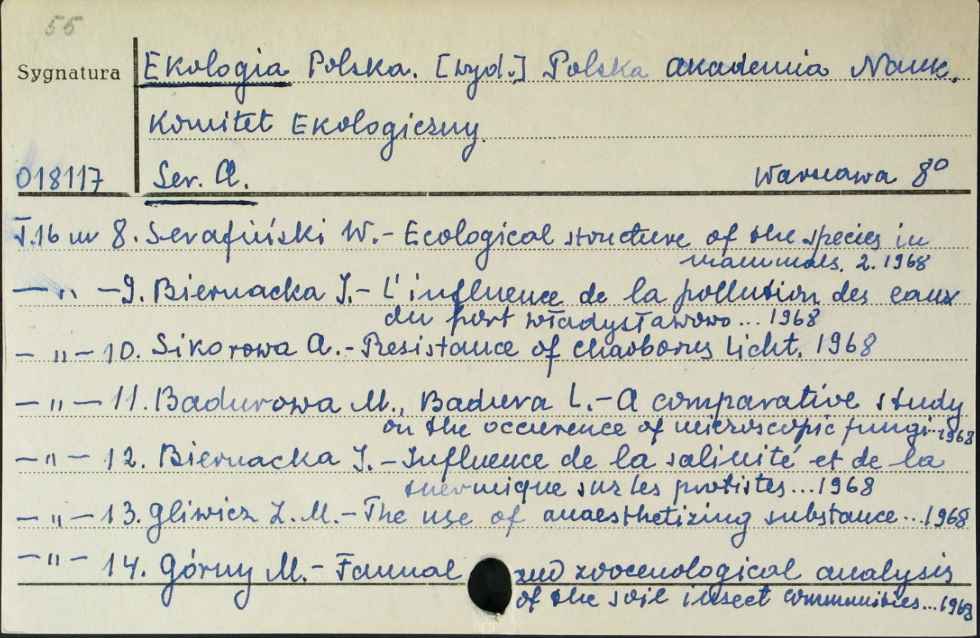 55
Sygnatura
Ekologia Polska. [wyd.] Polska akademia Nauk.
Komitet Ekologiczny
018117
Ser. A.
Warszawa 8°
T.16 nr 8. Serafiński W. - Ecological structure of the species in
mammals. 2. 1968
— „ — 9. Biernacka I. - L'influence de la pollution des eaux
du port Władysławowo ... 1968
— „ — 10. Sikorowa A. - Resistance of chaoborus Licht. 1968
— „ — 11. Badurowa M., Badura L. - A comparative study
on the occurence of microscopic fungi... 1968
— „ — 12. Biernacka I. - Influence de la salinité et de la
thermique sur les protistes ... 1968
— „ — 13. Gliwicz Z. M. - The use of anaesthetizing substance ... 1968
— „ — 14. Górny M. - Faunal and zoocenological analysis
of the soil insect communities ... 1968